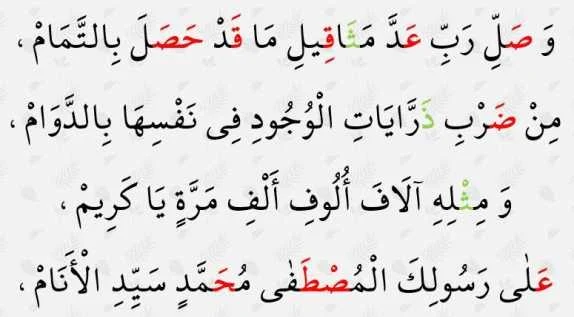 وَ صَلِّ رَبِّ عَدَّ مَثَاقِيلِ مَا قَدْ حَصَلَ بِالتَّمَامْ ،
مِنْ ضَرْبِ ذَرَّايَاتِ الْوُجُودِ فِى نَفْسِهَا بِالدَّوَامْ ،
وَ مِثْلِهِ آلَافَ أُلُوفِ أَلْفِ مَرَّةٍ يَا كَرِيمْ ،
عَلٰى رَسُولِكَ الْمُصْطَفٰى مُحَمَّدٍ سَيِّدِ الْأَنَامْ ،